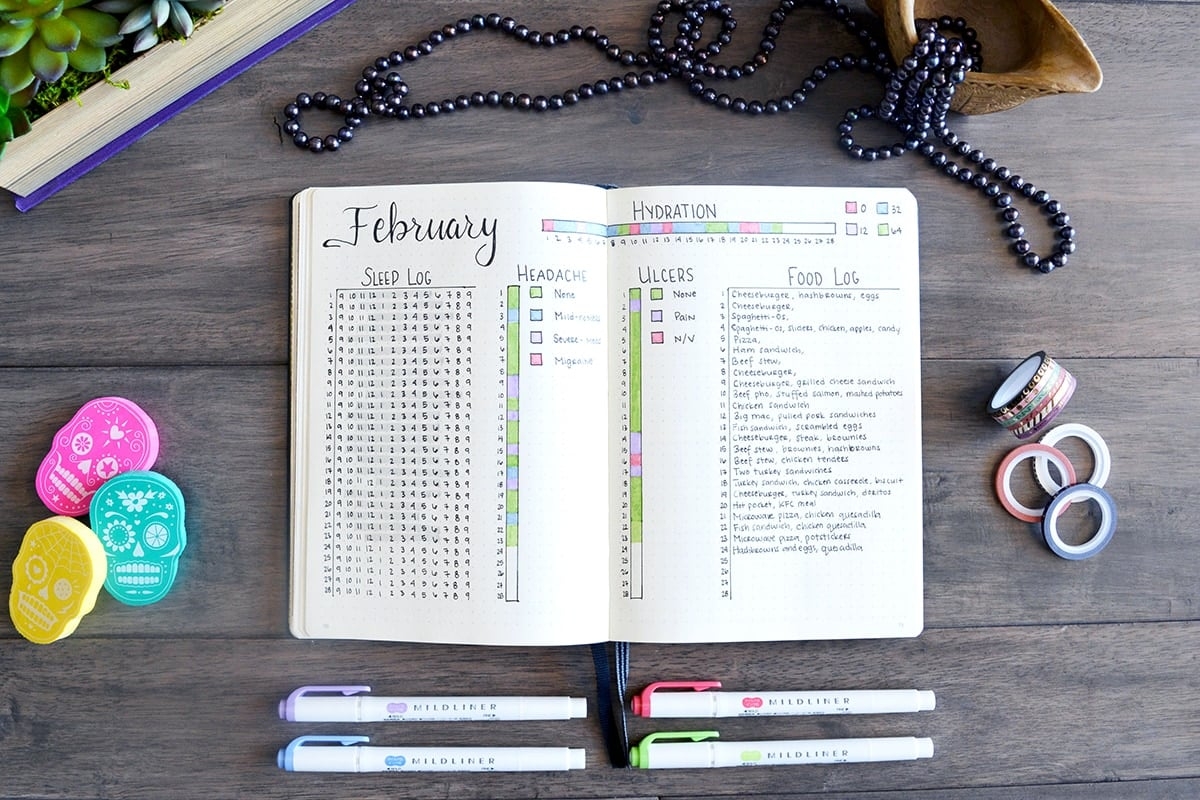 February
HYDRATION
0
32
12
64
1 2 3 4 5 6 7 8 9 10 11 12 13 14 15 16 17 18 19 20 21 22 23 24 25 26 27 28
SLEEP LOG
9 10 11 12 1 2 3 4 5 6 7 8 9
HEADACHE
None
Mild
Severe
Migraine
ULCERS
None
Pain
N/V
FOOD LOG
1 Cheeseburger, hashbrowns, eggs
2 Cheeseburger,
3 Spaghetti-Os,
4 Spaghetti-Os, sliders, chicken, apples, candy
5 Pizza,
6 Ham sandwich,
7 Beef stew,
8 Cheeseburger,
9 Cheeseburger, grilled cheese sandwich
10 Beef pho, stuffed salmon, mashed potatoes
11 Chicken sandwich
12 Big mac, pulled pork sandwiches
13 Fish sandwich, scrambled eggs
14 Cheeseburger, steak, brownies
15 Beef stew, brownies, hashbrowns
16 Beef stew, chicken tenders
17 Two turkey sandwiches
18 Turkey sandwich, chicken casserole, biscuit
19 Cheeseburger, turkey sandwich, doritos
20 Hot pocket, KFC meal
21 Microwave pizza, chicken quesadilla
22 Fish sandwich, chicken quesadilla
23 Microwave pizza, potstickers
24 Hashbrowns and eggs, quesadilla
25
26
27
28
MILDLINER
MILDLINER
MILDLINER
MILDLINER